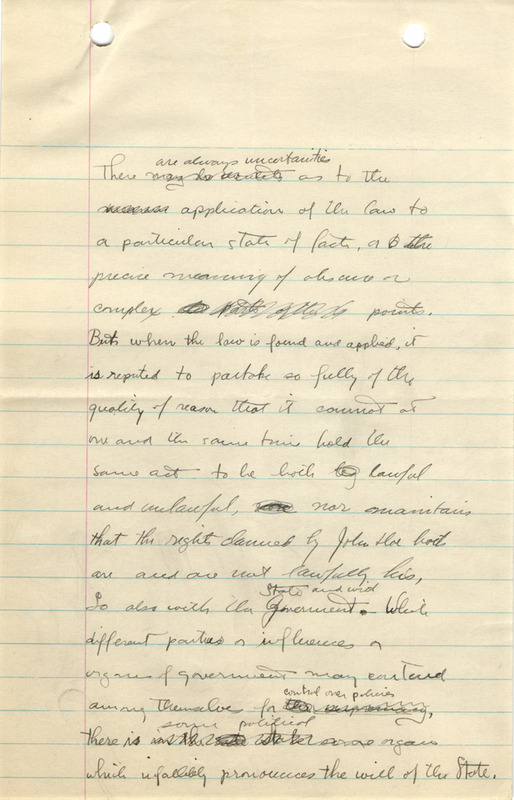 are always uncertainties
There may be doubts as to the
application of the law to
a particular state of facts, or to the
precise meaning of obscure or
complex points.
But when the law is found and applied, it
is reputed to partake so fully of the
quality of reason that it cannot at
one and the same time hold the
same act to be both lawful
and unlawful, nor maintain
that the rights claimed by John Doe both
are and are not lawfully his.
State and
So also with the Government. While
different parties or influences or
organs of government may contend
control over policies
among themselves for
some political
there is organ
which infallibly pronounces the will of the State.